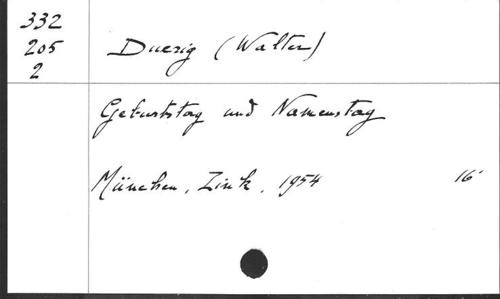 332
205
2
Duerig (Walter)
Geburtstag und Namenstag
München, Zink, 1954 16'